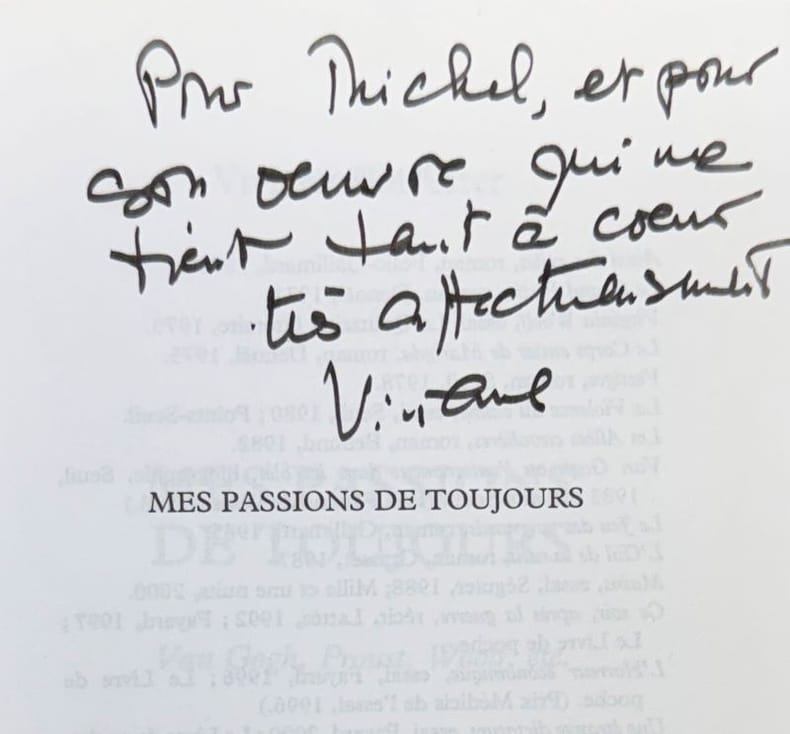 Pour Michel, et pour
son oeuvre qui me
tient tant à coeur
très affectueusement
Viviane
MES PASSIONS DE TOUJOURS